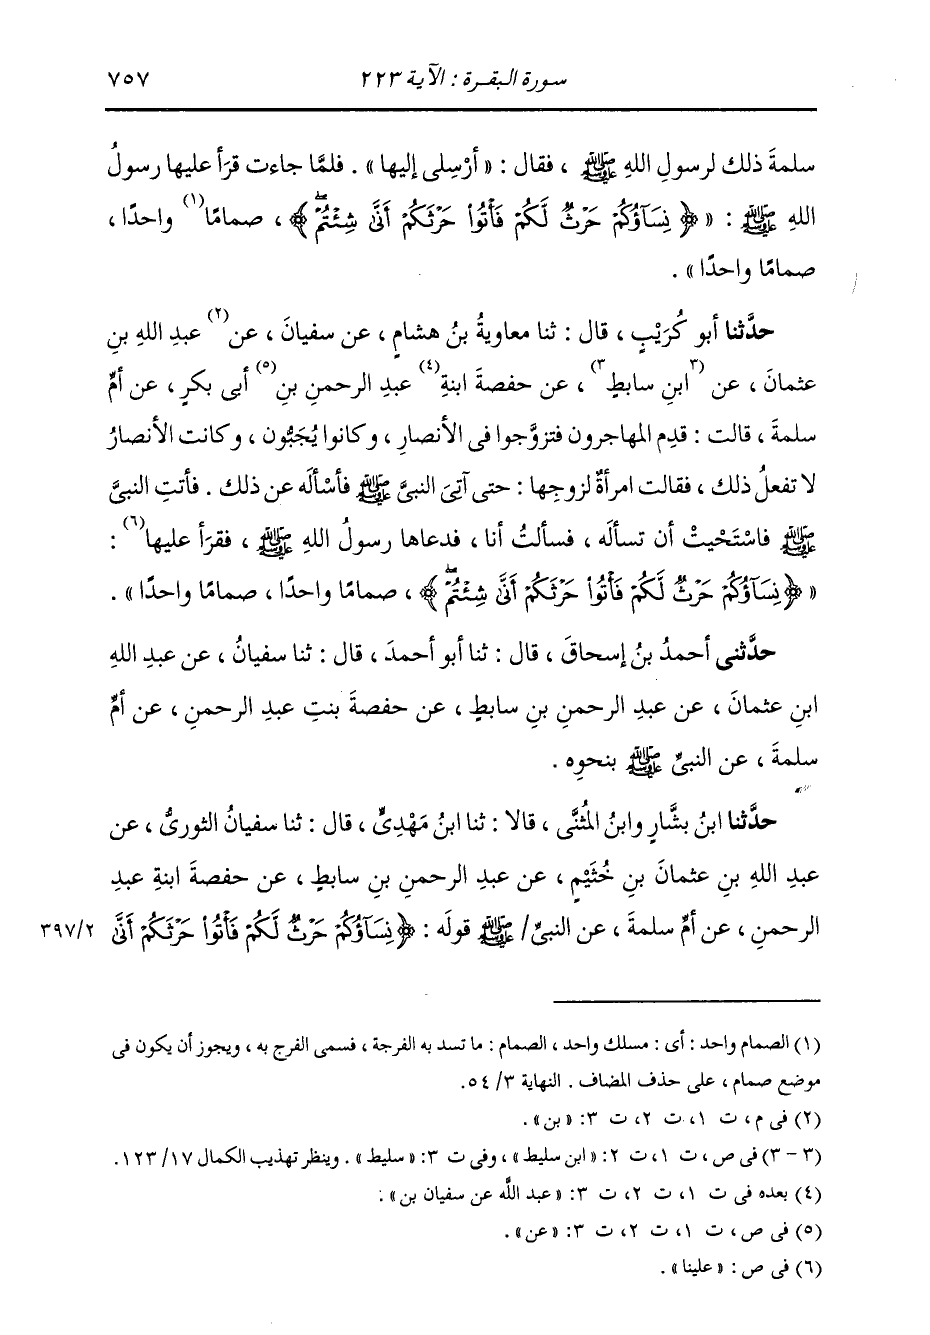 سورة البقرة : الآية ٢٢٣
٧٥٧
سلمةَ ذلك لرسولِ اللهِ ﷺ ، فقال : «أرْسِلى إليها» . فلمَّا جاءت قرَأ عليها رسولُ
اللهِ ﷺ : « ﴿ نِسَآؤُكُمْ حَرْثٌ لَّكُمْ فَأْتُوا۟ حَرْثَكُمْ أَنَّىٰ شِئْتُمْۖ ﴾ ، صمامًا(١) واحدًا ،
صمامًا واحدًا» .
حدَّثنا أبو كُرَيْبٍ ، قال : ثنا معاويةُ بنُ هشامٍ ، عن سفيانَ ، عن(٢) عبدِ اللهِ بنِ
عثمانَ ، عن (٣ابنِ سابطٍ٣) ، عن حفصةَ ابنةِ(٤) عبدِ الرحمنِ بنِ(٥) أبى بكرٍ ، عن أمِّ
سلمةَ ، قالت : قدِم المهاجرون فتزوَّجوا فى الأنصارِ ، وكانوا يُجَبُّون ، وكانت الأنصارُ
لا تفعلُ ذلك ، فقالت امرأةٌ لزوجِها : حتى آتِىَ النبىَّ ﷺ فأسْألَه عن ذلك . فأتتِ النبىَّ
ﷺ فاسْتَحْيتْ أن تسألَه ، فسألتُ أنا ، فدعاها رسولُ اللهِ ﷺ ، فقرَأ عليها(٦) :
« ﴿ نِسَآؤُكُمْ حَرْثٌ لَّكُمْ فَأْتُوا۟ حَرْثَكُمْ أَنَّىٰ شِئْتُمْۖ ﴾ ، صمامًا واحدًا ، صمامًا واحدًا» .
حدَّثنى أحمدُ بنُ إسحاقَ ، قال : ثنا أبو أحمدَ ، قال : ثنا سفيانُ ، عن عبدِ اللهِ
ابنِ عثمانَ ، عن عبدِ الرحمنِ بنِ سابطٍ ، عن حفصةَ بنتِ عبدِ الرحمنِ ، عن أمِّ
سلمةَ ، عن النبىِّ ﷺ بنحوِه .
حدَّثنا ابنُ بشَّارٍ وابنُ المُثنَّى ، قالا : ثنا ابنُ مَهْدِىٍّ ، قال : ثنا سفيانُ الثورىُّ ، عن
عبدِ اللهِ بنِ عثمانَ بنِ خُثَيْمٍ ، عن عبدِ الرحمنِ بنِ سابطٍ ، عن حفصةَ ابنةِ عبدِ
الرحمنِ ، عن أمِّ سلمةَ ، عن النبىِّ / ﷺ قولَه : ﴿ نِسَآؤُكُمْ حَرْثٌ لَّكُمْ فَأْتُوا۟ حَرْثَكُمْ أَنَّىٰ
٣٩٧/٢
(١) الصمام واحد : أى : مسلك واحد ، الصمام : ما تسد به الفرجة ، فسمى الفرج به ، ويجوز أن يكون فى
موضع صمام ، على حذف المضاف . النهاية ٣/ ٥٤.
(٢) فى م ، ت ١، ت ٢، ت ٣: «بن» .
(٣ - ٣) فى ص ، ت ١، ت ٢: «ابن سليط» ، وفى ت ٣: «سليط» . وينظر تهذيب الكمال ١٧/ ١٢٣.
(٤) بعده فى ت ١، ت ٢، ت ٣: «عبد الله عن سفيان بن» .
(٥) فى ص ، ت ١، ت ٢، ت ٣: «عن» .
(٦) فى ص : «علينا» .